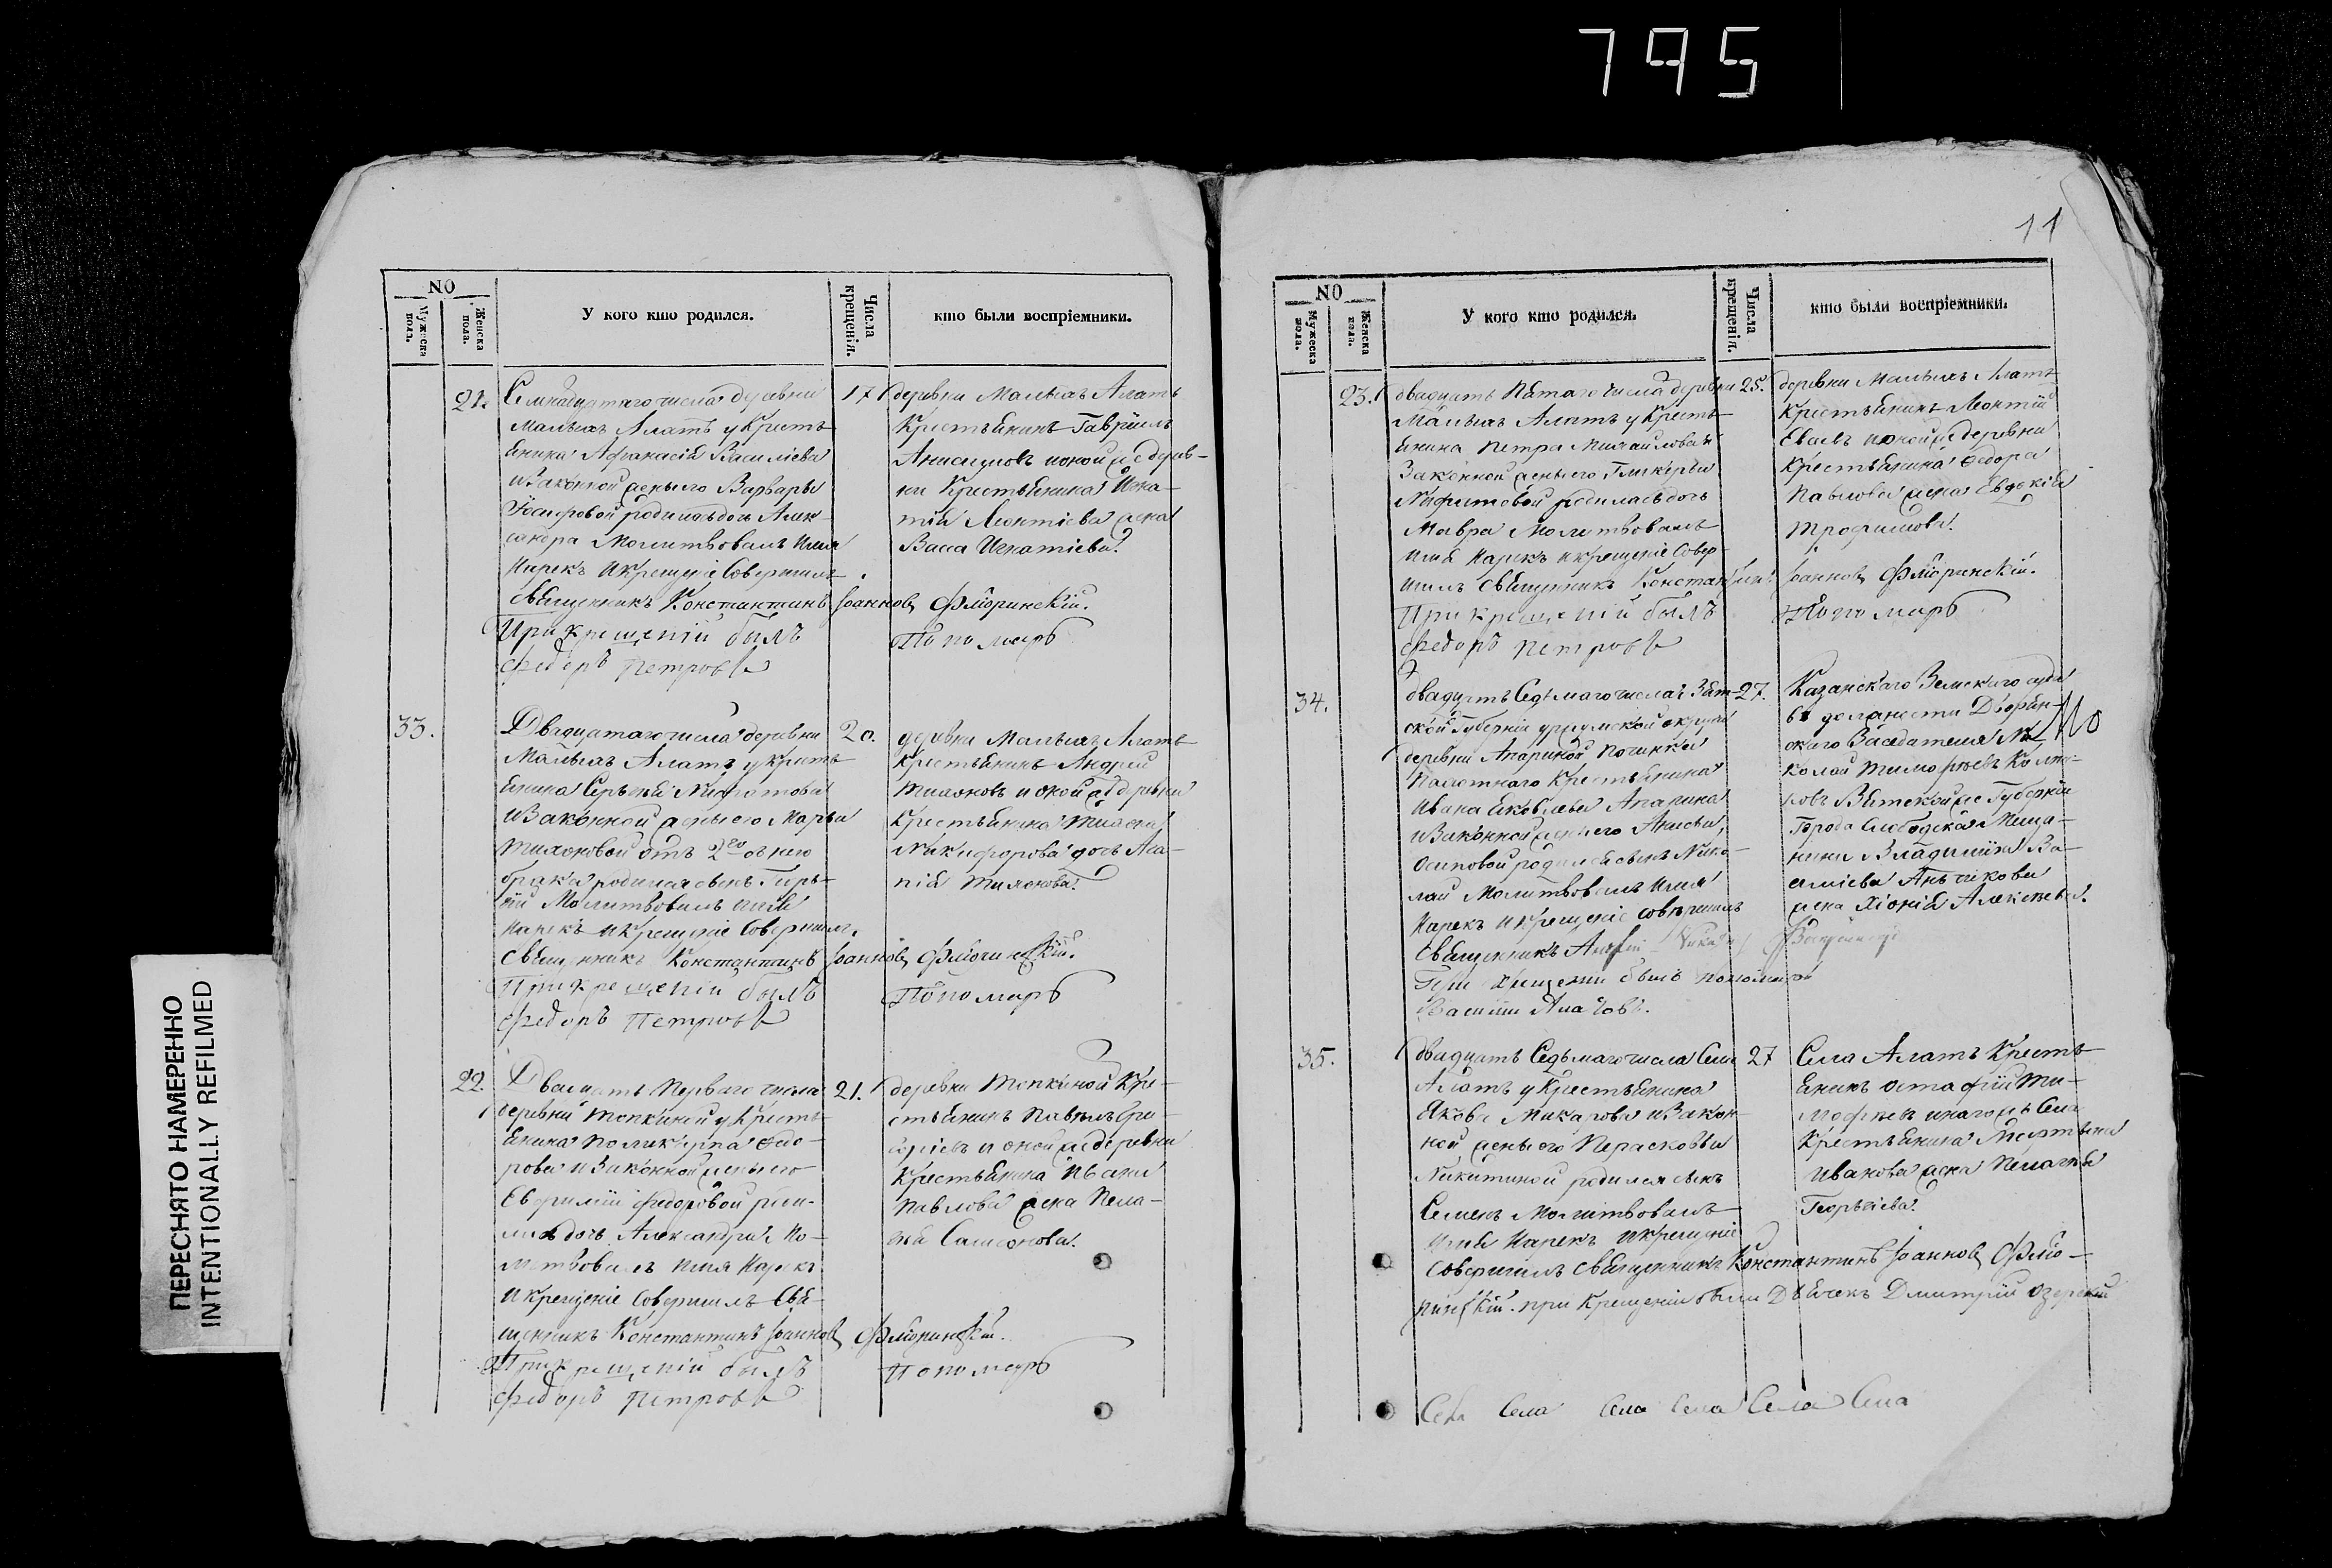 795
11
ПЕРЕСНЯТО НАМЕРЕННО
INTENTIONALLY REFILMED
NO
Мужеска пола.
Женска пола.
У кого кто родился.
Числа крещенія.
кто были воспріемники.
21. Семнадцатаго числа деревни
Малыхъ Алатъ у Кресть-
янина Афанасія Василіева
и Законной жены его Варвары
Іосифовой родилась дочь Алек-
сандра Молитвовалъ имя
Нарекъ и крещеніе Совершилъ
Священникъ Константинъ Іоанновъ Флоринскій.
При крещеніи былъ Пономарь
Федоръ Петровъ
17 деревни Малыхъ Алатъ
Крестьянинъ Гавріилъ
Анисимовъ и оной же дерев-
ни Крестьянина Игна-
тія Леонтіева жена
Васса Игнатіева.
33. Двадцатаго числа деревни
Малыхъ Алатъ у кресть-
янина Сергѣя
и Законной жены его Марьи
Тихоновой отъ 2го съ нею
брака родился сынъ
Молитвовалъ имя
Нарекъ и Крещеніе Совершилъ
Священникъ Константинъ Іоанновъ Флоринскій.
При крещеніи былъ Пономарь
Федоръ Петровъ
20. деревни Малыхъ Алатъ
Крестьянинъ Андрей
Тихоновъ и оной же деревни
Крестьянина Тихона
Никифорова дочь Ага-
пія Тихонова.
22. Двадцать Перваго числа
деревни Топкиной у Кресть-
янина Поликарпа Федо-
рова и Законной жены его
Евфиміи Федоровой роди-
лась дочь Александра Мо-
литвовалъ имя Нарекъ
и крещеніе Совершилъ Свя-
щенникъ Константинъ Іоанновъ Флоринскій.
При крещеніи былъ Пономарь
Федоръ Петровъ
21. деревни Топкиной Кре-
стьянинъ Павелъ
и оной же деревни
Крестьянина Ивана
Павлова жена Пела-
гія Самсонова.
NO
Мужеска пола.
Женска пола.
У кого кто родился.
Числа крещенія.
кто были воспріемники.
23. двадцать Пятаго числа деревни
Малыхъ Алатъ у Кресть-
янина Петра Михайлова и
Законной жены его Гликерьи
родилась дочь
Мавра Молитвовалъ
имя Нарекъ и крещеніе Совер-
шилъ Священникъ Константинъ Іоанновъ Флоринскій.
При крещеніи былъ Пономарь
Федоръ Петровъ
25. деревни Малыхъ Алатъ
Крестьянинъ Леонтій
и оной же деревни
крестьянина Федора
Павлова жена Евдокія
Трофимова.
34. двадцать Седьмаго числа Вят-
ской Губерніи уржумской округи
деревни Апариной Починка
Крестьянина
Ивана Яковлева Апарина
и Законной жены его
Осиповой родился сынъ Нико-
лай Молитвовалъ имя
Нарекъ и крещеніе совершилъ
Священникъ
При крещеніи былъ пономарь
Василій
27. Казанскаго Земскаго суда
въ должности Дворян-
скаго Заседателя Ни-
колай Тимофѣевъ
Вятской же Губерніи
Города Слободска Меща-
нина Владиміра Ва-
силіева
жена Хіонія Алексѣева.
35. двадцать Седьмаго числа Села
Алатъ у Крестьянина
Якова Макарова и Закон-
ной жены его Парасковьи
Никитиной родился сынъ
Семенъ Молитвовалъ
имя Нарекъ и крещеніе
Совершилъ Священникъ Константинъ Іоанновъ Фло-
ринскій. при Крещеніи былъ Дьячекъ Дмитрій Озерскій
27 Села Алатъ Кресть-
янинъ Остафій Ти-
мофѣевъ и того жъ Села
Крестьянина Мартына
Иванова жена Пелагѣя
Георгіева.
Села Села Села Села Села Села